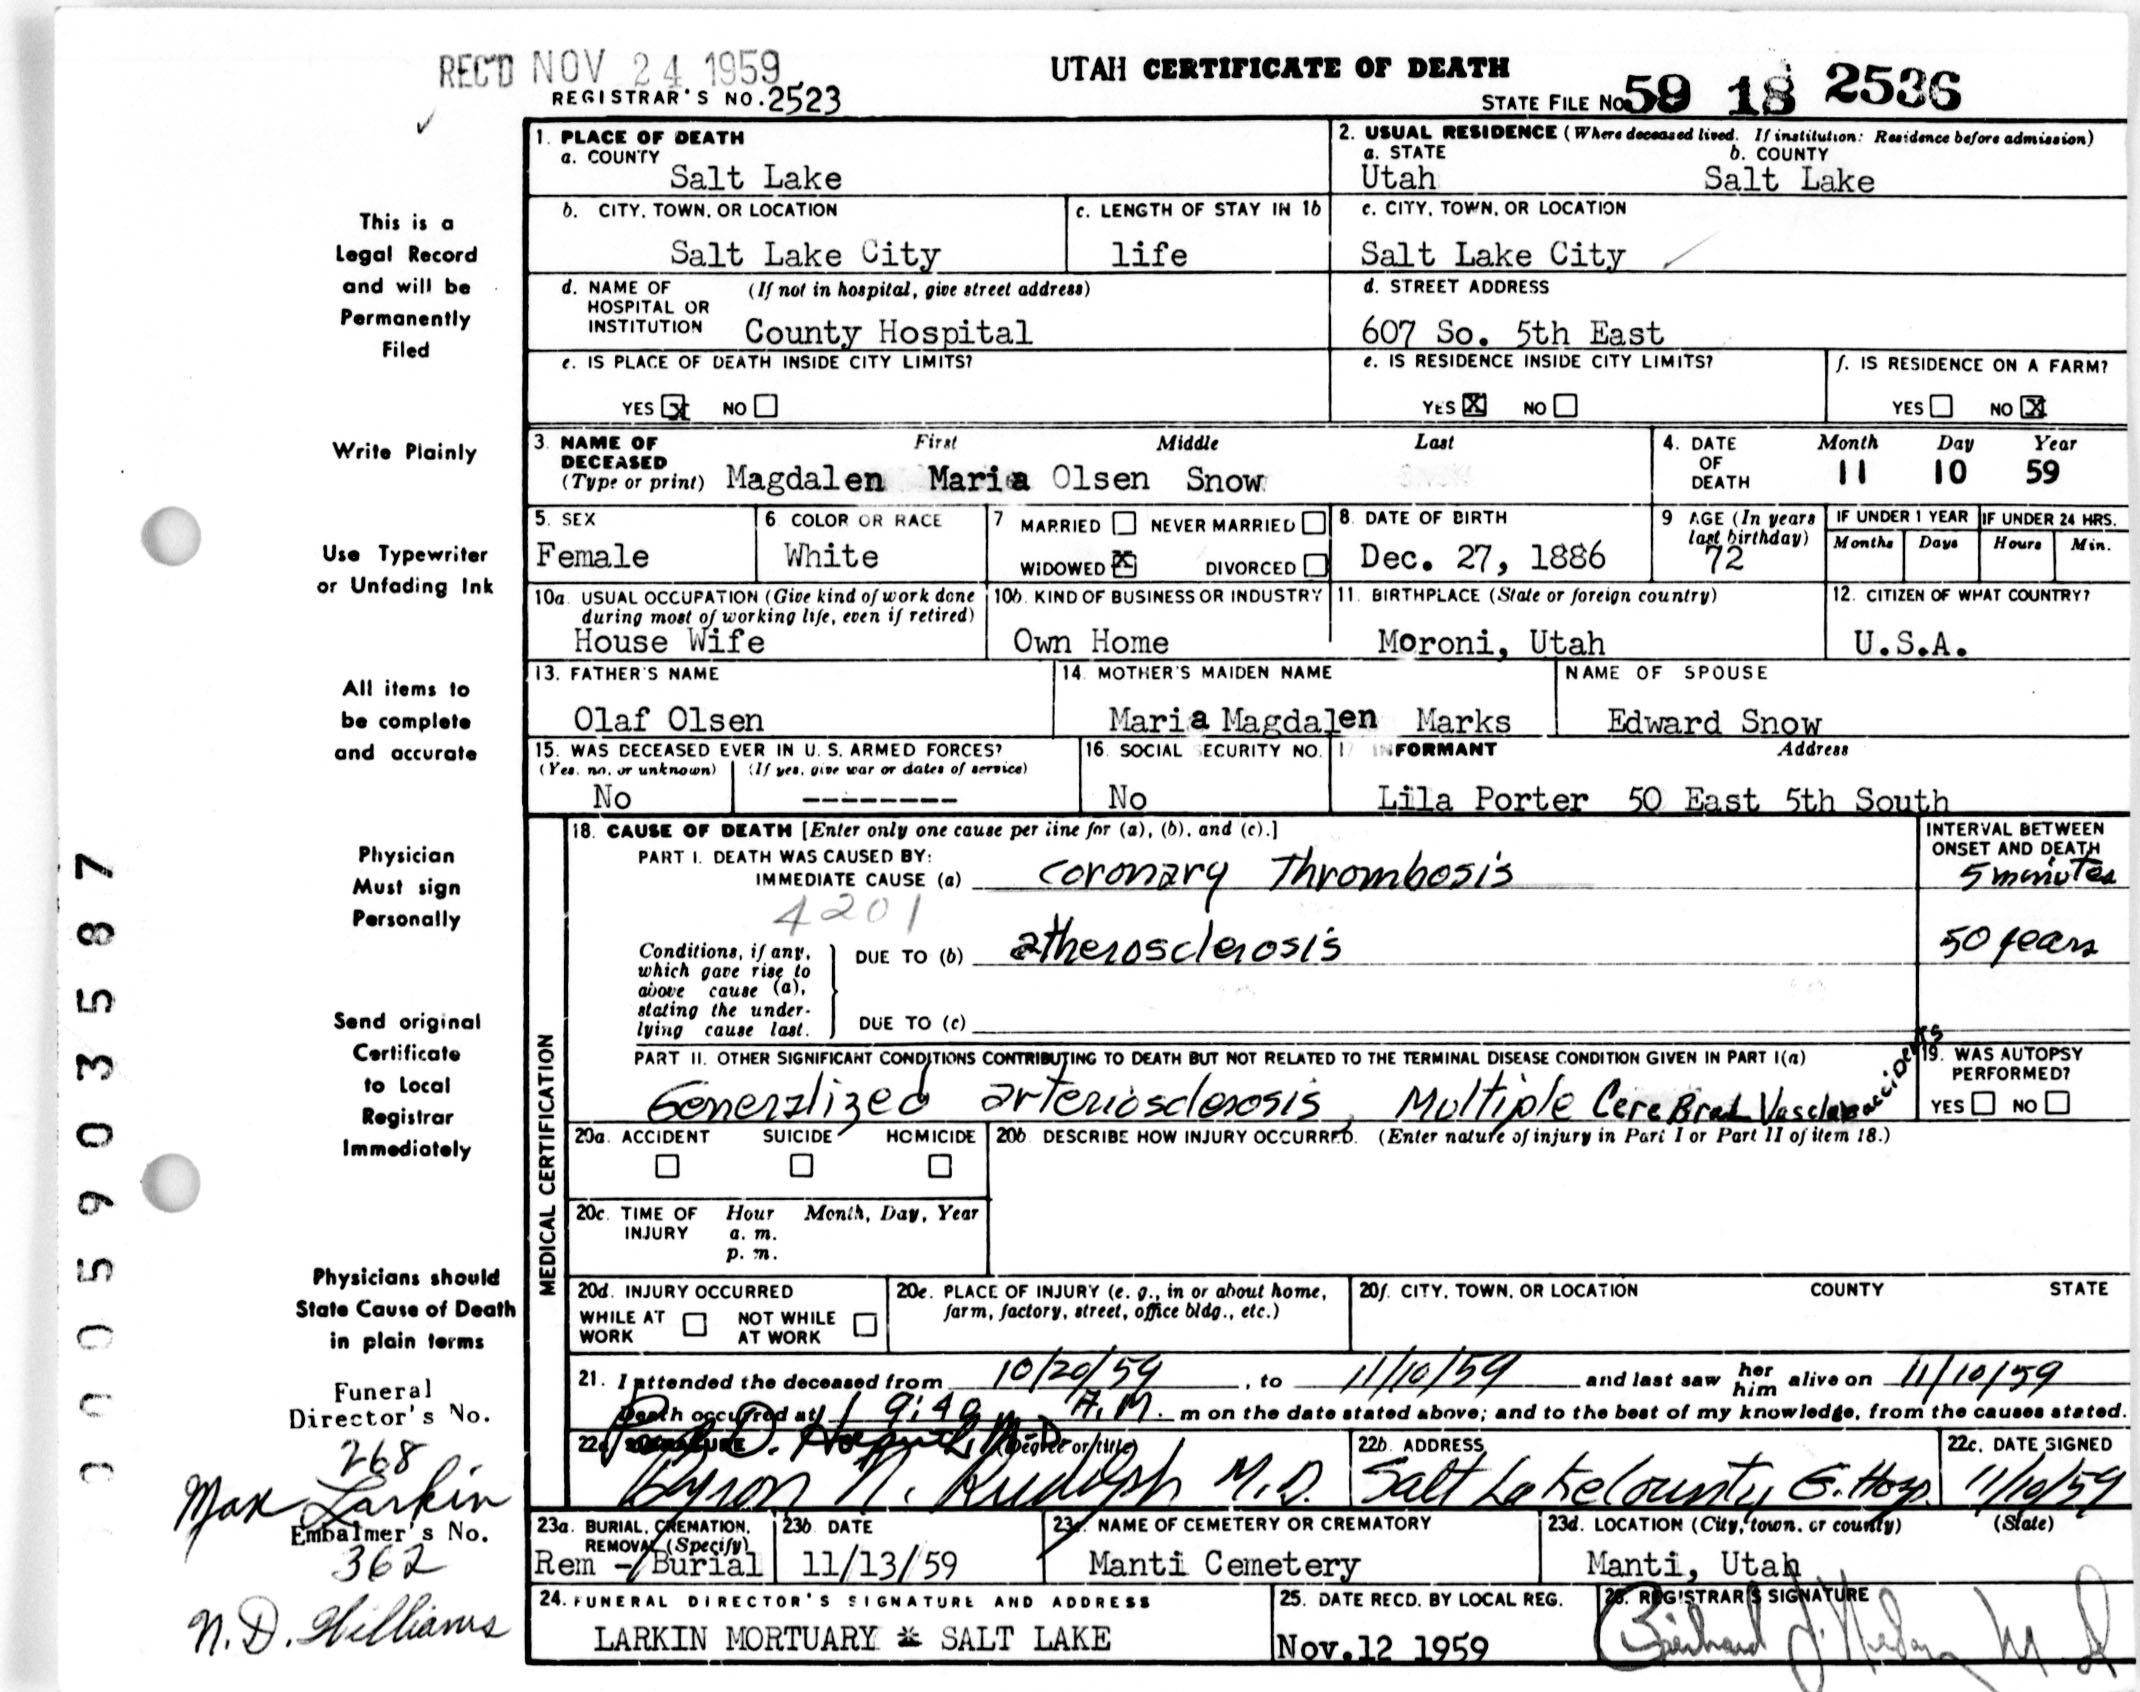 REC'D NOV 24 1959
REGISTRAR'S NO. 2523
UTAH CERTIFICATE OF DEATH
STATE FILE NO. 59 18 2536
This is a
Legal Record
and will be
Permanently
Filed
Write Plainly
Use Typewriter
or Unfading Ink
All items to
be complete
and accurate
Physician
Must sign
Personally
Send original
Certificate
to Local
Registrar
Immediately
Physicians should
State Cause of Death
in plain terms
Funeral
Director's No.
268
Max Larkin
Embalmer's No.
362
N. D. Williams
0005903587
1. PLACE OF DEATH
a. COUNTY
Salt Lake
2. USUAL RESIDENCE (Where deceased lived. If institution: Residence before admission)
a. STATE b. COUNTY
Utah Salt Lake
b. CITY, TOWN, OR LOCATION
Salt Lake City
c. LENGTH OF STAY IN 1b
life
c. CITY, TOWN, OR LOCATION
Salt Lake City
d. NAME OF HOSPITAL OR INSTITUTION (If not in hospital, give street address)
County Hospital
d. STREET ADDRESS
607 So. 5th East
e. IS PLACE OF DEATH INSIDE CITY LIMITS?
YES X NO
e. IS RESIDENCE INSIDE CITY LIMITS?
YES X NO
f. IS RESIDENCE ON A FARM?
YES NO X
3. NAME OF DECEASED (Type or print) First Middle Last
Magdalen Maria Olsen Snow
4. DATE OF DEATH Month Day Year
11 10 59
5. SEX
Female
6. COLOR OR RACE
White
7 MARRIED NEVER MARRIED
WIDOWED X DIVORCED
8. DATE OF BIRTH
Dec. 27, 1886
9 AGE (In years last birthday)
72
IF UNDER 1 YEAR
Months Days
IF UNDER 24 HRS.
Hours Min.
10a. USUAL OCCUPATION (Give kind of work done during most of working life, even if retired)
House Wife
10b. KIND OF BUSINESS OR INDUSTRY
Own Home
11. BIRTHPLACE (State or foreign country)
Moroni, Utah
12. CITIZEN OF WHAT COUNTRY?
U.S.A.
13. FATHER'S NAME
Olaf Olsen
14. MOTHER'S MAIDEN NAME
Maria Magdalen Marks
NAME OF SPOUSE
Edward Snow
15. WAS DECEASED EVER IN U. S. ARMED FORCES?
(Yes, no, or unknown) (If yes, give war or dates of service)
No --------
16. SOCIAL SECURITY NO.
No
17 INFORMANT Address
Lila Porter 50 East 5th South
MEDICAL CERTIFICATION
18. CAUSE OF DEATH [Enter only one cause per line for (a), (b), and (c).]
INTERVAL BETWEEN ONSET AND DEATH
PART I. DEATH WAS CAUSED BY:
IMMEDIATE CAUSE (a) Coronary Thrombosis 5 minutes
4201
Conditions, if any, which gave rise to above cause (a), stating the underlying cause last.
DUE TO (b) atherosclerosis 50 years
DUE TO (c)
PART II. OTHER SIGNIFICANT CONDITIONS CONTRIBUTING TO DEATH BUT NOT RELATED TO THE TERMINAL DISEASE CONDITION GIVEN IN PART I(a)
Generalized arteriosclerosis, Multiple Cerebral Vascular accidents
19. WAS AUTOPSY PERFORMED?
YES NO
20a. ACCIDENT SUICIDE HOMICIDE
20b. DESCRIBE HOW INJURY OCCURRED. (Enter nature of injury in Part I or Part II of item 18.)
20c. TIME OF INJURY Hour Month, Day, Year
a. m.
p. m.
20d. INJURY OCCURRED
WHILE AT WORK NOT WHILE AT WORK
20e. PLACE OF INJURY (e. g., in or about home, farm, factory, street, office bldg., etc.)
20f. CITY, TOWN, OR LOCATION COUNTY STATE
21. I attended the deceased from 10/20/59, to 11/10/59 and last saw her him alive on 11/10/59
Death occurred at 9:40 A.M. m on the date stated above; and to the best of my knowledge, from the causes stated.
22a. SIGNATURE (Degree or title)
Byron N. M.D.
22b. ADDRESS
Salt Lake County G. Hosp.
22c. DATE SIGNED
11/10/59
23a. BURIAL, CREMATION, REMOVAL (Specify)
Rem - Burial
23b DATE
11/13/59
23c. NAME OF CEMETERY OR CREMATORY
Manti Cemetery
23d. LOCATION (City, town, or county) (State)
Manti, Utah
24. FUNERAL DIRECTOR'S SIGNATURE AND ADDRESS
LARKIN MORTUARY * SALT LAKE
25. DATE RECD. BY LOCAL REG.
Nov. 12 1959
26. REGISTRAR'S SIGNATURE